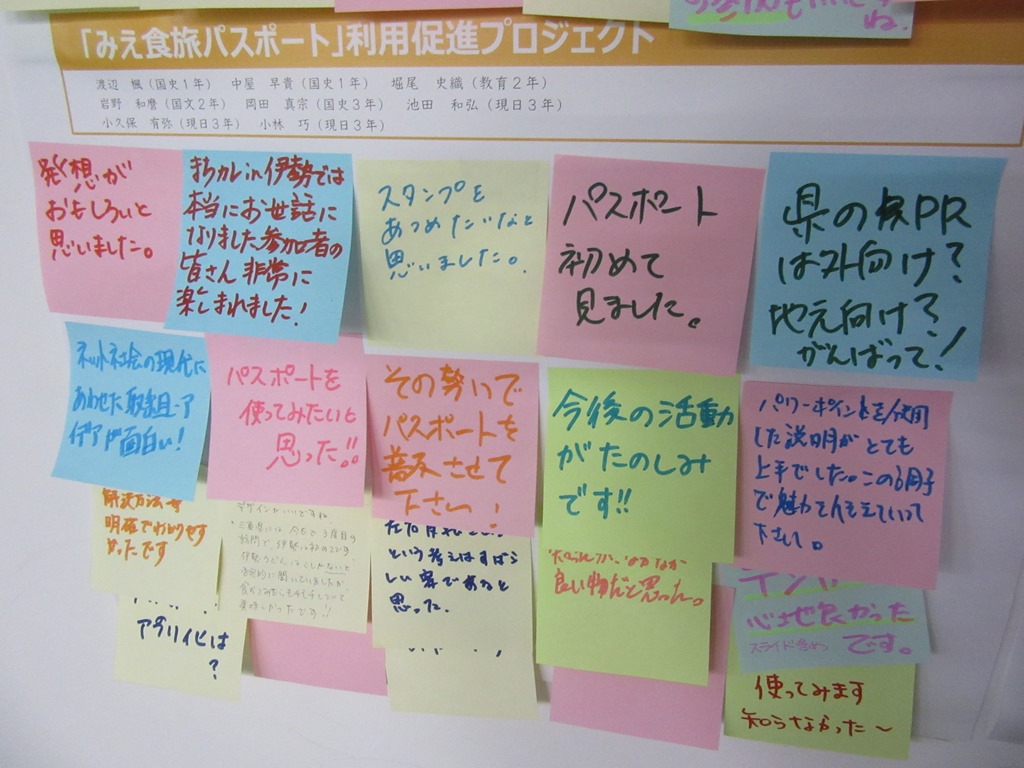 ね.
「みえ食旅パスポート」利用促進プロジェクト
渡辺　楓(国史1年)　中屋　早貴(国史1年)　堀尾　史織(教育2年)
岩野　和麿(国文2年)　岡田　真宗(国史3年)　池田　和弘(現日3年)
小久保　有弥(現日3年)　小林　巧(現日3年)
発想が
おもしろいと
思いました。
in伊勢では
本当にお世話に
なりました。参加者の
皆さん非常に
楽しまれました！
スタンプを
あつめたいなと
思いました。
パスポート
初めて
見ました。
県のPR
は外向け？
地元向け？
がんばって！
ネット社会の現代に
あわせた取組
面白い！
パスポートを
使ってみたいと
思った!!
その勢いで
パスポートを
させて
下さい！
今後の活動
がたのしみ
です!!
パワーポイントを使用
した説明が とても
上手でした。この調子
で魅力を伝えていって
下さい。
解決方法も
明確でわかりやす
かったです
デザインがいいですね
という考えはすばら
しい案であると
思った。
良い物だと思った。
心地良かった
です。
アプリ化は
？
使ってみます
知らなかった〜